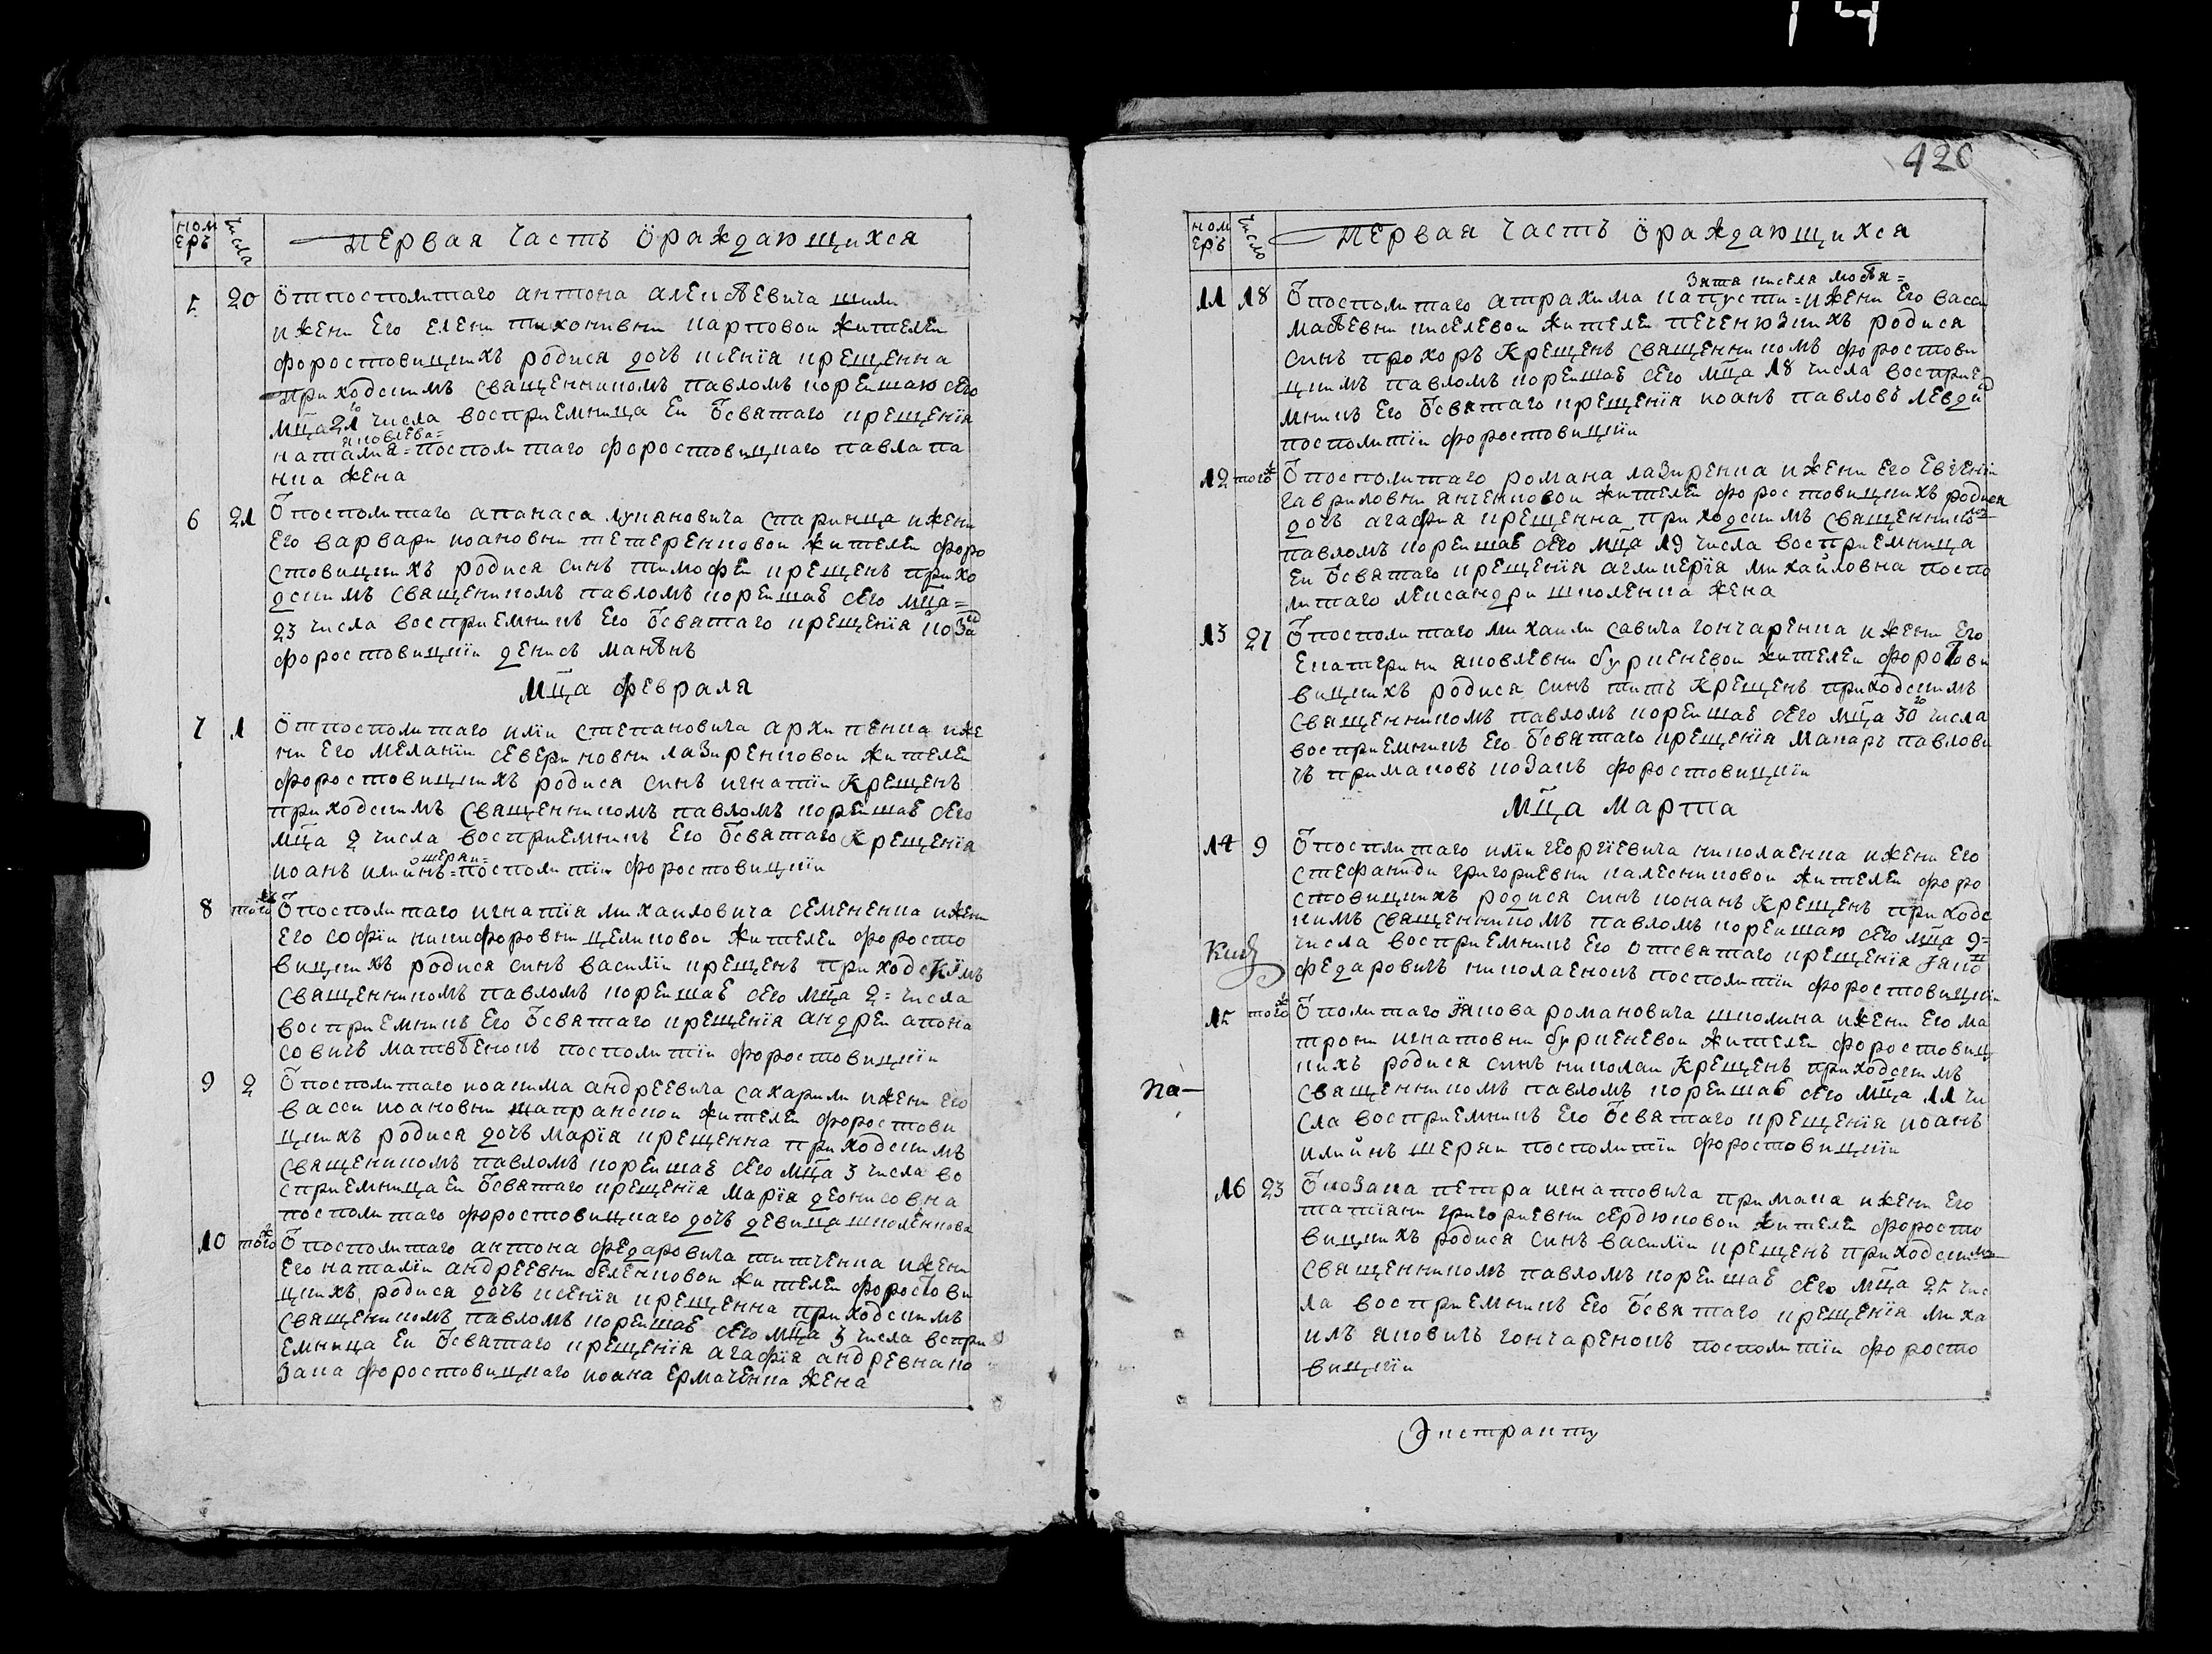 14
420
номеръ числа Первая часть ѽраждающихся
5 20 Ѿ посполитаго антона алеѯѣевича шили
и жени его елени тихонивни карповои жителеи
форостовицкихъ родися дочъ ксенїя крещенна
приходскимъ священникомъ павломъ корейшаю сего
мц҃а 21го числа восприемница еи ѿ святаго крещенїя
яковлева=
наталия=посполитаго форостовицкаго павла па
нка жена
6 21 Ѿ посполитаго апанаса лукяновича старинца и жени
его варвари иоановни тетеренковои жителеи форо
стовицкихъ родися синъ тимофеи крещенъ прихо
дскимъ священикомъ павломъ корейшаѣ сего мц҃а=
23 числа восприемникъ его ѿ святаго крещенїя коза
форостовицкїи денисъ
Мц҃а февраля
7 1 Ѿ посполитаго илїи степановича архипенка и же
ни его меланїи севериновни лазиренковои жителеи
форостовицкихъ родися синъ игнатїи крещенъ
приходскимъ священникомъ павломъ корейшаѣ сего
мц҃а 2 числа восприемникъ его ѿ святаго крещенїя
шеряк=
иоанъ илиинъ=посполитїи форостовицкїи
8 тогож Ѿ посполитаго игнатїя михаиловича семененка и жени
его софїи никифоровни целиковои жителеи форосто
вицкихъ родися синъ василїи крещенъ приходскїмъ
священникомъ павломъ корейшаѣ сего мц҃а 2= числа
восприемникъ его ѿ святаго крещенїя андреи апона
совичъ матвѣенокъ посполитїи форостовицкїи
9 2 Ѿ посполитаго иоакима андреевича сахарили и жени его
васси иоановни шапранскои жителеи форостови
цкихъ родися дочъ марїя крещенна приходскимъ
священикомъ павломъ корейшаѣ сего мц҃а 3 числа во
сприемница еи ѿ святаго крещенїя марїя деонисовна
посполитаго форостовицкаго дочъ девица шполенкова
10 тогож Ѿ посполитаго антона федаровича титченка и жени
его наталїи андреевни беленковои жителеи форостови
цкихъ родися дочъ ксенїя крещенна приходскимъ
священикомъ павломъ корейшаѣ сего мц҃а 3 числа вспри
емница еи ѿ святаго крещенїя агафїя андревна ко
зака форостовицкаго иоана ермаченка жена
номеръ число Первая часть ѽраждающихся
зятя киселя
11 18 Ѿ посполитаго атрахима капусти=и жени его васси
маѳѣевни киселевои жителеи печенюзкихъ родися
синъ прохоръ крещенъ священникомъ форостови
цкимъ павломъ корейшаѣ сего мц҃а 18 числа восприе
мникъ его ѿ святаго крещенїя иоанъ павловъ
посполитїи форостовицкїи
12 тогож Ѿ посполитаго романа лазиренка и жени его евгенїи
гавриловни янченковои жителеи форостовицкихъ родися
дочъ агафия крещенна приходскимъ священникомъ
павломъ корейшаѣ сего мц҃а 19 числа восприемница
еи ѿ святаго крещенїя агликерїя михайловна поспо
литаго лександри шполенка жена
13 27 Ѿ посполитаго михаили савича гончаренка и жени его
екатерини яковлевни буркеневои жителеи форостови
вицкихъ родися синъ титъ крещенъ приходскимъ
священникомъ павломъ корейшаѣ сего мц҃а 30го числа
восприемникъ его ѿ святаго крещенїя макаръ павлови
чъ примаковъ козакъ форостовицкїи
Мц҃а марта
14 9 Ѿ посплитаго илїи георгїевича николаенка и жени его
стефаниди григориевни калесниковои жителеи форо
стовицкихъ родися синъ иоанъ крещенъ приходс
кимъ священникомъ павломъ корейшаю сего мц҃а 9=
числа восприемникъ его от святаго крещенїя яков
федаровичъ николаенокъ посполитїи форостовицкїи
15 тогож Ѿ политаго якова романовича шполина и жени его ма
трони игнатовни буркеневои жителеи форостовиц
кихъ родися синъ николаи крещенъ приходскимъ
на— священникомъ павломъ корейшаѣ сего мц҃а 11 чи
сла восприемникъ его ѿ святаго крещенїя иоанъ
илиинъ шеряк посполитїи форостовицкїи
16 23 Ѿ козака петра игнатовича примака и жени его
татїяни григориевни сердюковои жителеи форосто
вицкихъ родися синъ василїи крещенъ приходскимъ
священникомъ павломъ корейшаѣ сего мц҃а 25 чис
ла восприемникъ его ѿ святаго крещенїя миха
илъ яковичъ гончаренокъ посполитїи форосто
вицкїи
Экстракту